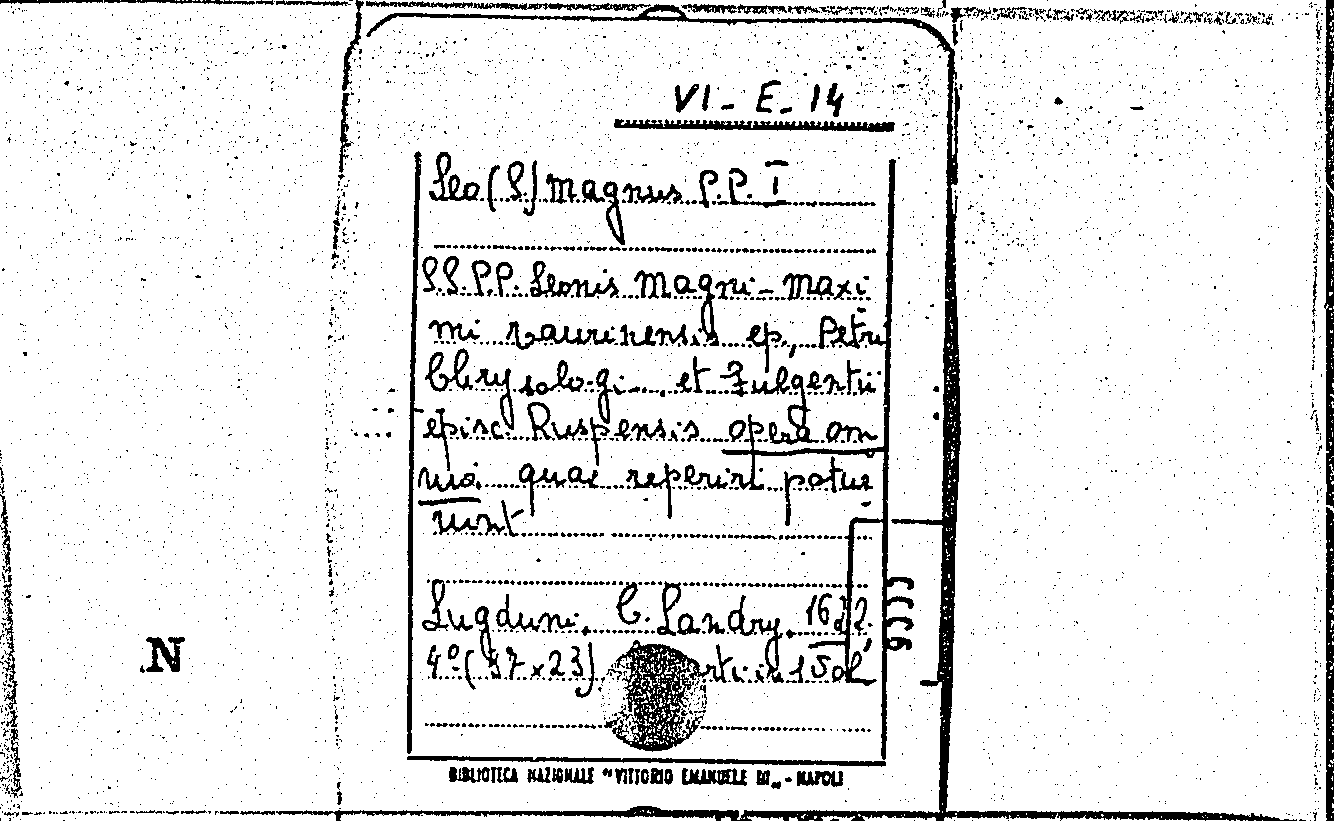 VI - E - 14
Leo (S.) Magnus P.P. I
S.S.P.P. Leonis Magni - Maxi
mi Taurinensis ep., Petri
Chrysologi et Fulgentii
episc. Ruspensis opera om
nia quae reperiri potue
runt
Lugduni. C. Landry, 1622.
4º (37 x 23)
in 1 vol
BIBLIOTECA NAZIONALE "VITTORIO EMANUELE III" - NAPOLI
N